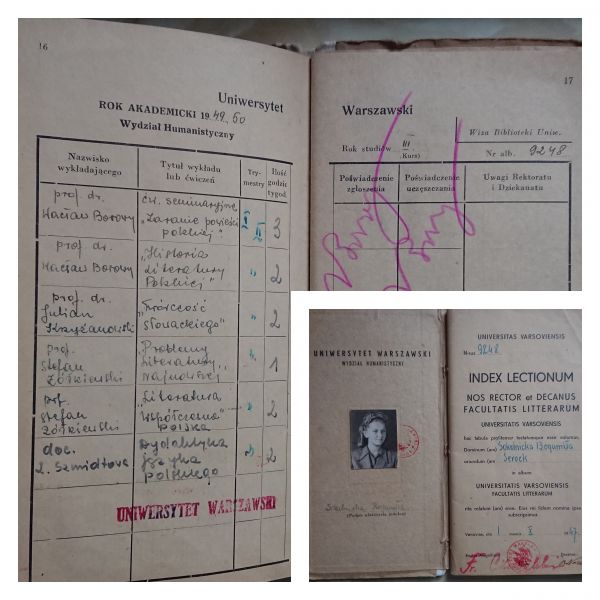 16
Uniwersytet
ROK AKADEMICKI 1949/50
Wydział Humanistyczny
Nazwisko wykładającego
Tytuł wykładu lub ćwiczeń
Try-mestry
Ilość godzin tygod.
prof. dr. Wacław Borowy
ćw. seminaryjne „Zaranie powieści polskiej".
I II
3
prof. dr. Wacław Borowy
„Historia Literatury Polskiej"
"
2
prof. dr. Julian Krzyżanowski
„Twórczość Słowackiego"
"
2
prof. Stefan Żółkiewski
„Problemy Literatury Najnowszej
"
1
prof. Stefan Żółkiewski
„Literatura Współczesna" Polska
"
2
doc. Z. Szmidtowa
Dydaktyka języka polskiego
"
2
UNIWERSYTET WARSZAWSKI
17
Warszawski
Rok studiów III
(Kurs)
Wiza Biblioteki Uniw.
Nr alb. 9248
Poświadczenie zgłoszenia
Poświadczenie uczęszczania
Uwagi Rektoratu i Dziekanatu
UNIWERSYTET WARSZAWSKI
WYDZIAŁ HUMANISTYCZNY
(Podpis właściciela indeksu)
UNIVERSITAS VARSOVIENSIS
9248
INDEX LECTIONUM
NOS RECTOR et DECANUS
FACULTATIS LITTERARUM
UNIVERSITATIS VARSOVIENSIS
hac tabula profitemur testatumque esse volumus,
Dominum (am) Sokolnicka Bogumiła
oriundum (am) Serock
in album
UNIVERSITATIS VARSOVIENSIS
FACULTATIS LITTERARUM
rite relatum (am) esse. Eius rei fidem nomina ipsi
subscripsimus
Varsoviae, die 1 mensis X 1947